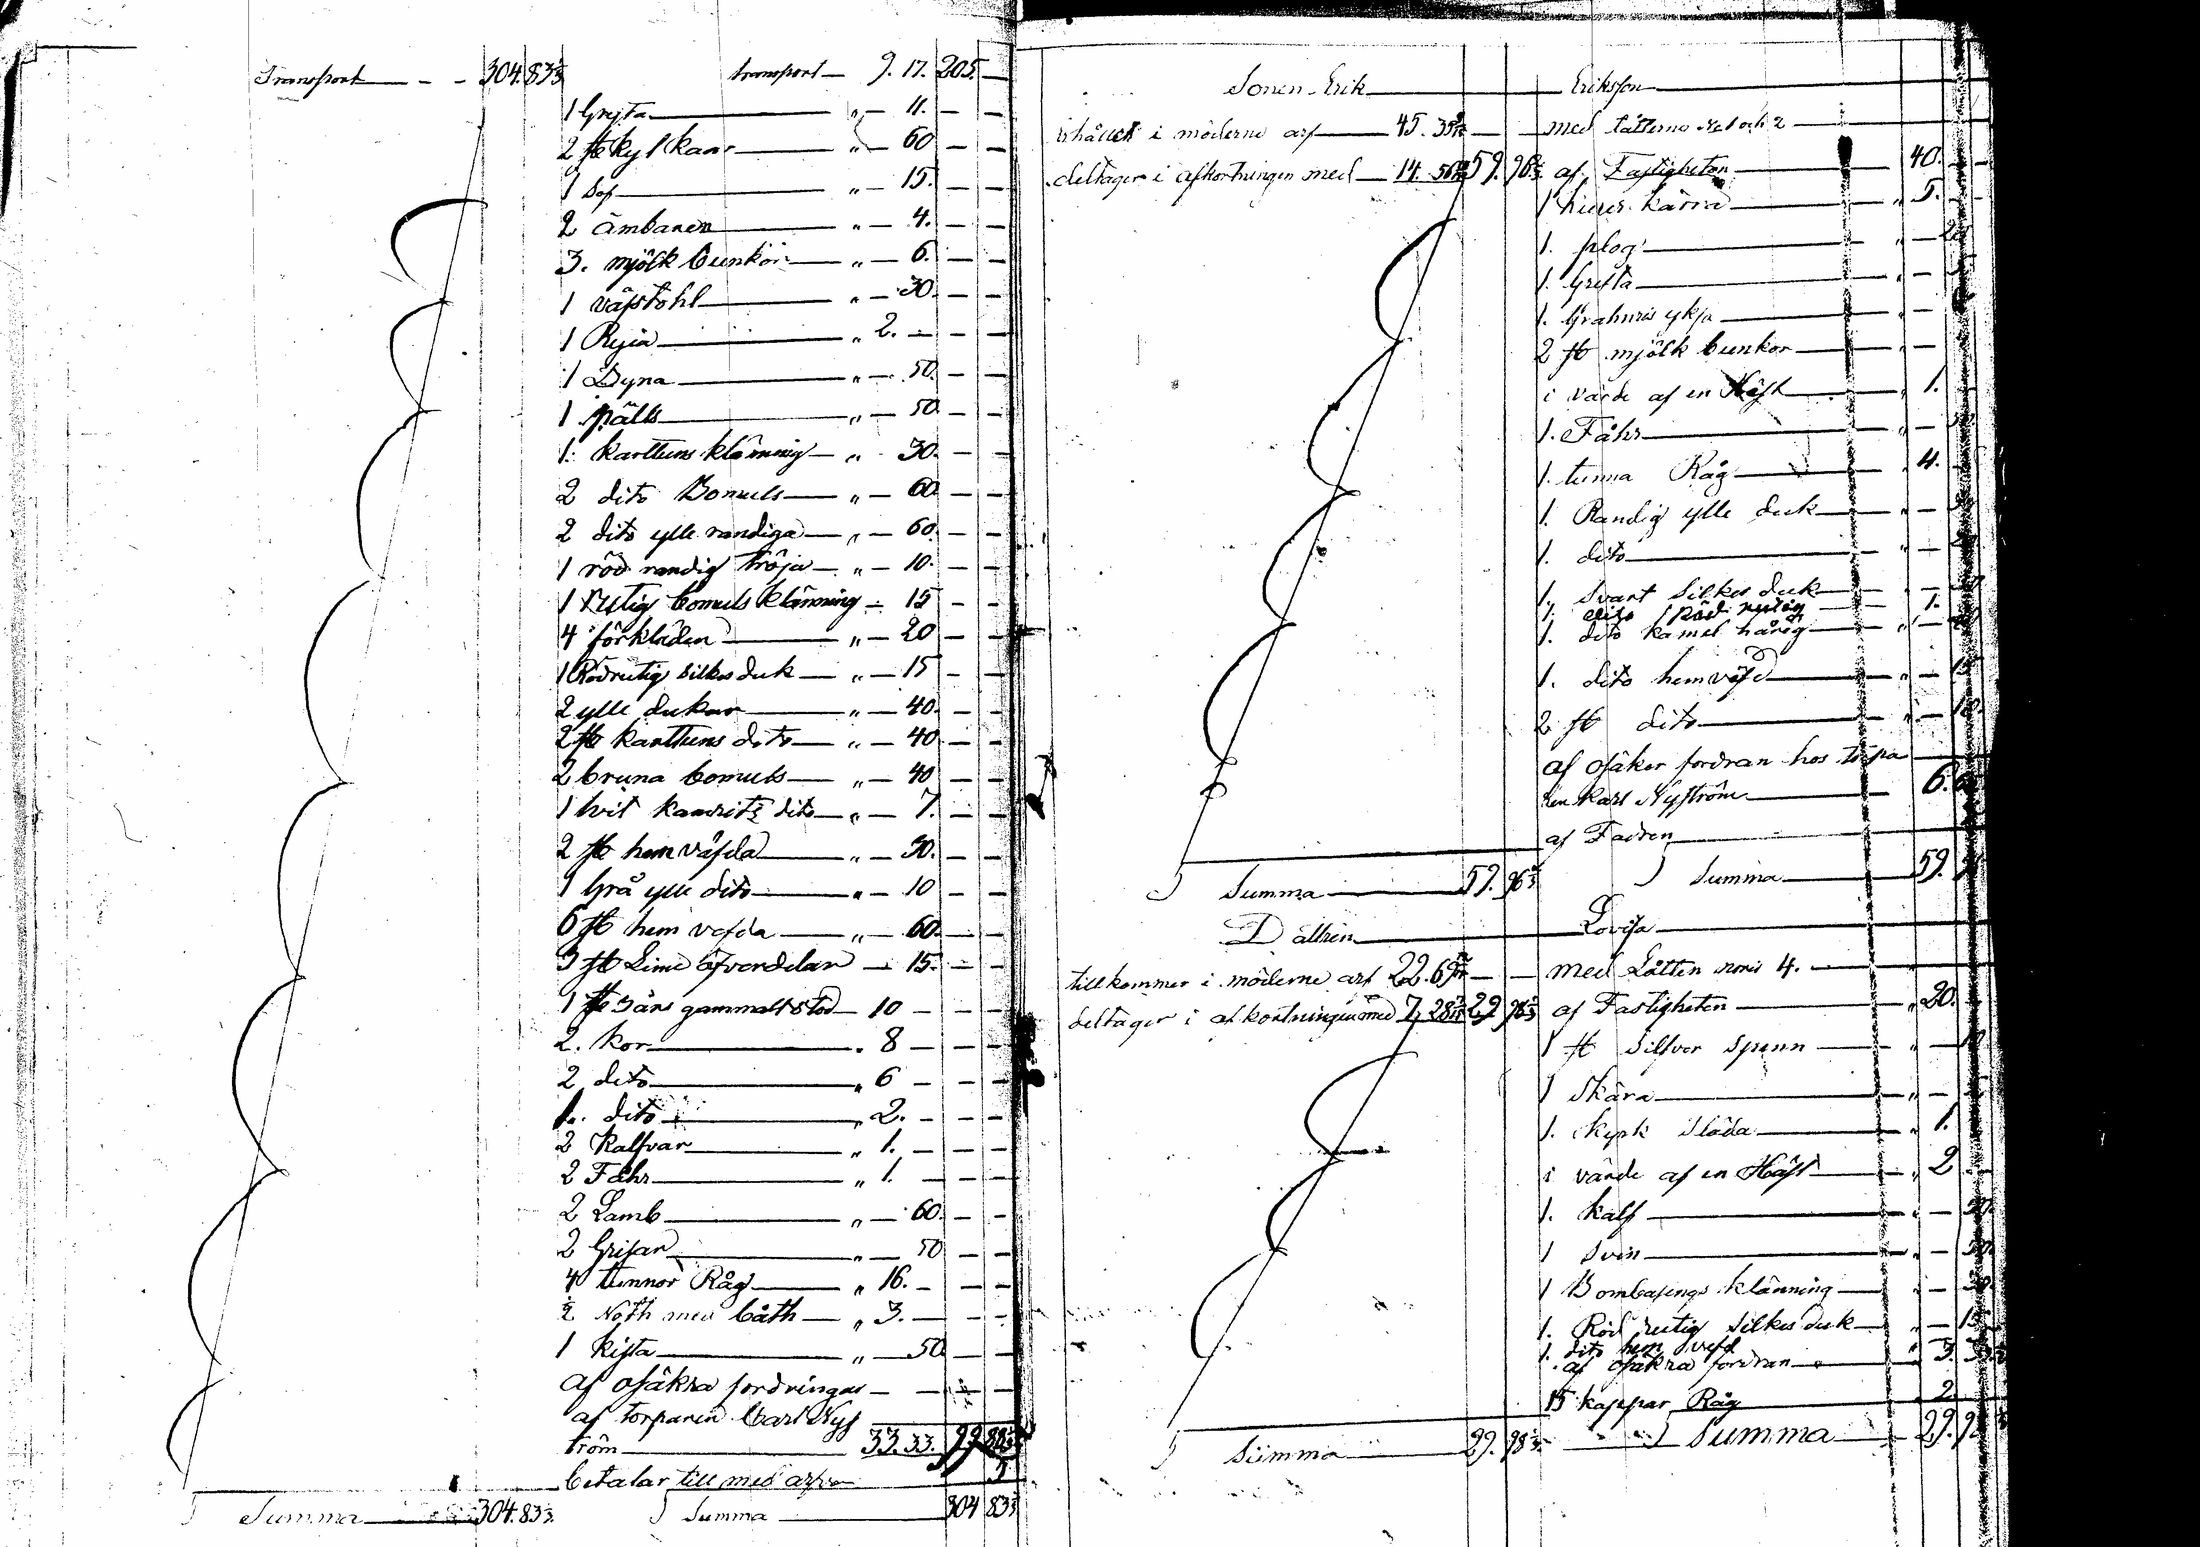 Transport — - - 304.83⅓
transport — 9. 17. 205. —
1 Gryta — „ — 11. — —
2 st kyl kaar — „ — 60 — —
1 — „ — 15. — —
2 ämbaren — „ — 4. — —
3. mjölk bunkor — „ — 6. — —
1 väfstohl — „ — 30. — —
1 Ryia — „ 2. — — —
1 Dyna — „ — 50. — —
1 pälts — „ — 50. — —
1. karttuns klänning — „ 30. — —
2 dito Bomuls — „ — 60 — —
2 dito ylle randiga — „ — 60. — —
1 röd randig tröja — „ — 10. — —
1 rutig bomuls klänning — 15 — —
4 förkläden — „ — 20 — —
1 Rödrutig silkes duk — „ — 15 — —
2 ylle dukar — „ — 40. — —
2 st karttuns dito — „ — 40 — —
2 bruna bomuls — „ — 40 — —
1 hvit dito — „ — 7. — —
2 st hem väfda — „ — 30. — —
1 Grå ylle dito — „ — 10 — —
6 st hem vefda — „ — 60. — —
3 st öfverdelar — 15. — —
1 st 3 års gammalt stod — 10 — — —
2. kor — „ 8 — — —
2 dito — „ 6 — — —
1. dito — „ 2. — — —
2 Kalfvar — „ 1. — — —
2 Fåhr — „ 1. — — —
2 Lamb — „ — 60. — —
2 Grisar — „ — 50 — —
4 tunnor Råg — „ 16. — — —
½ Noth med båth — „ 3. — — —
1 kista — „ — 50 — —
af osäkra fordringar — — — —
af torparen Carl Nys
tröm — 33.33. 99
betalar till med arfva
Summa — 304.83⅓
Summa — 304 83⅓
Sonen Erik — Eriksson —
i möderne arf — 45. — —
deltager i afkortningen med — 14. 59.
med låtterne och 2 —
af Fastigheten — 40. —
1 kärra — „ 5. —
1. plog — „ —
1. Gryta — „ —
1. —
2 st mjölk bunkor — „ —
i värde af en Häst — „ 1.
1. Fåhr — „ —
1. tunna Råg — „ 4.
1. Randig ylle duk — „ —
1. dito — „ —
1, Svart Silkes duk — „ —
1, dito Röd rutig — 1.
1. dito kamel hårig — „ —
1. dito hem väfd — „ — 15
2 st dito — „ —
af osäker fordran hos torpa
ren Karl Nyström — 6.
af Fadren —
Summa — 59.
Summa — 59.
Dåttren — Lovisa —
tillkommer i möderne arf 22. — —
deltager i afkortningen med 7. 29
med Låtten 4. —
af Fastigheten — „ 20.
1 st silfver spenn — „ —
1 skära — „ —
1. kyrk släda — „ 1.
i värde af en Häst — „ 2 —
1. kalf — „ —
1 Svin — „ —
1 Bombasings klänning — „ —
1. Röd rutig silkes duk — „ — 15
1. dito hem vefd
af osäkra fordran — „ 3.
15 kappar Råg — 2
Summa — 29.
Summa — 29.